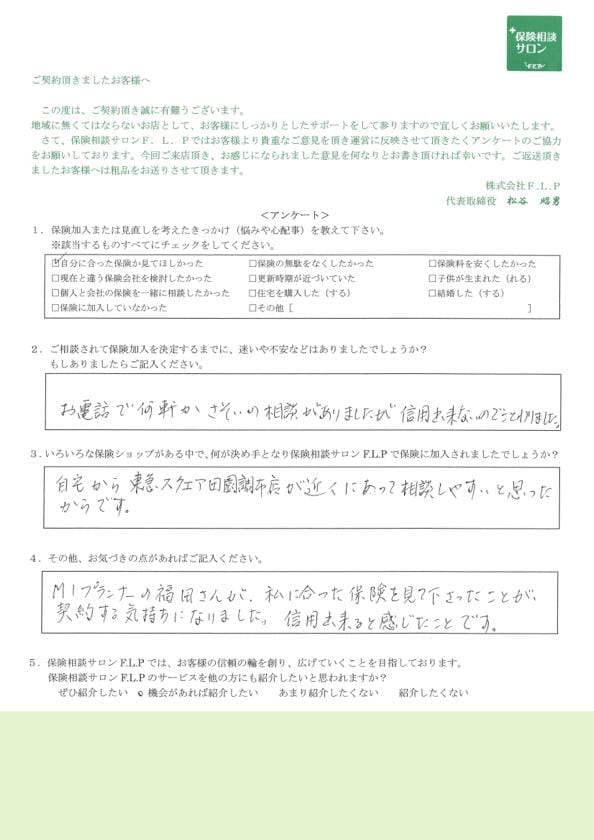 保険相談
サロン
F.L.P
ご契約頂きましたお客様へ
この度は、ご契約頂き誠に有難うございます。
地域に無くてはならないお店として、お客様にしっかりとしたサポートをして参りますので宜しくお願いいたします。
さて、保険相談サロンＦ．Ｌ．Ｐではお客様より貴重なご意見を頂き運営に反映させて頂きたくアンケートのご協力
をお願いしております。今回ご来店頂き、お感じになられました意見を何なりとお書き頂ければ幸いです。ご返送頂き
ましたお客様へは粗品をお送りさせて頂きます。
株式会社Ｆ.Ｌ.Ｐ
代表取締役 松谷 昭男
＜アンケート＞
１．保険加入または見直しを考えたきっかけ（悩みや心配事）を教えて下さい。
※該当するものすべてにチェックをしてください。
☑自分に合った保険か見てほしかった □保険の無駄をなくしたかった □保険料を安くしたかった
□現在と違う保険会社を検討したかった □更新時期が近づいていた □子供が生まれた（れる）
□個人と会社の保険を一緒に相談したかった □住宅を購入した（する） □結婚した（する）
□保険に加入していなかった □その他［ ］
２．ご相談されて保険加入を決定するまでに、迷いや不安などはありましたでしょうか？
もしありましたらご記入ください。
お電話で何軒かさそいの相談がありましたが信用出来ないのでことわりました。
３.いろいろな保険ショップがある中で、何が決め手となり保険相談サロン F.L.P で保険に加入されましたでしょうか？
自宅から東急スクエア田園調布店が近くにあって相談しやすいと思った
からです。
４．その他、お気づきの点があればご記入ください。
M1プランナーの福田さんが、私に合った保険を見て下さったことが、
契約する気持ちになりました。信用出来ると感じたことです。
５．保険相談サロン F.L.P では、お客様の信頼の輪を創り、広げていくことを目指しております。
保険相談サロン F.L.P のサービスを他の方にも紹介したいと思われますか？
ぜひ紹介したい 機会があれば紹介したい あまり紹介したくない 紹介したくない